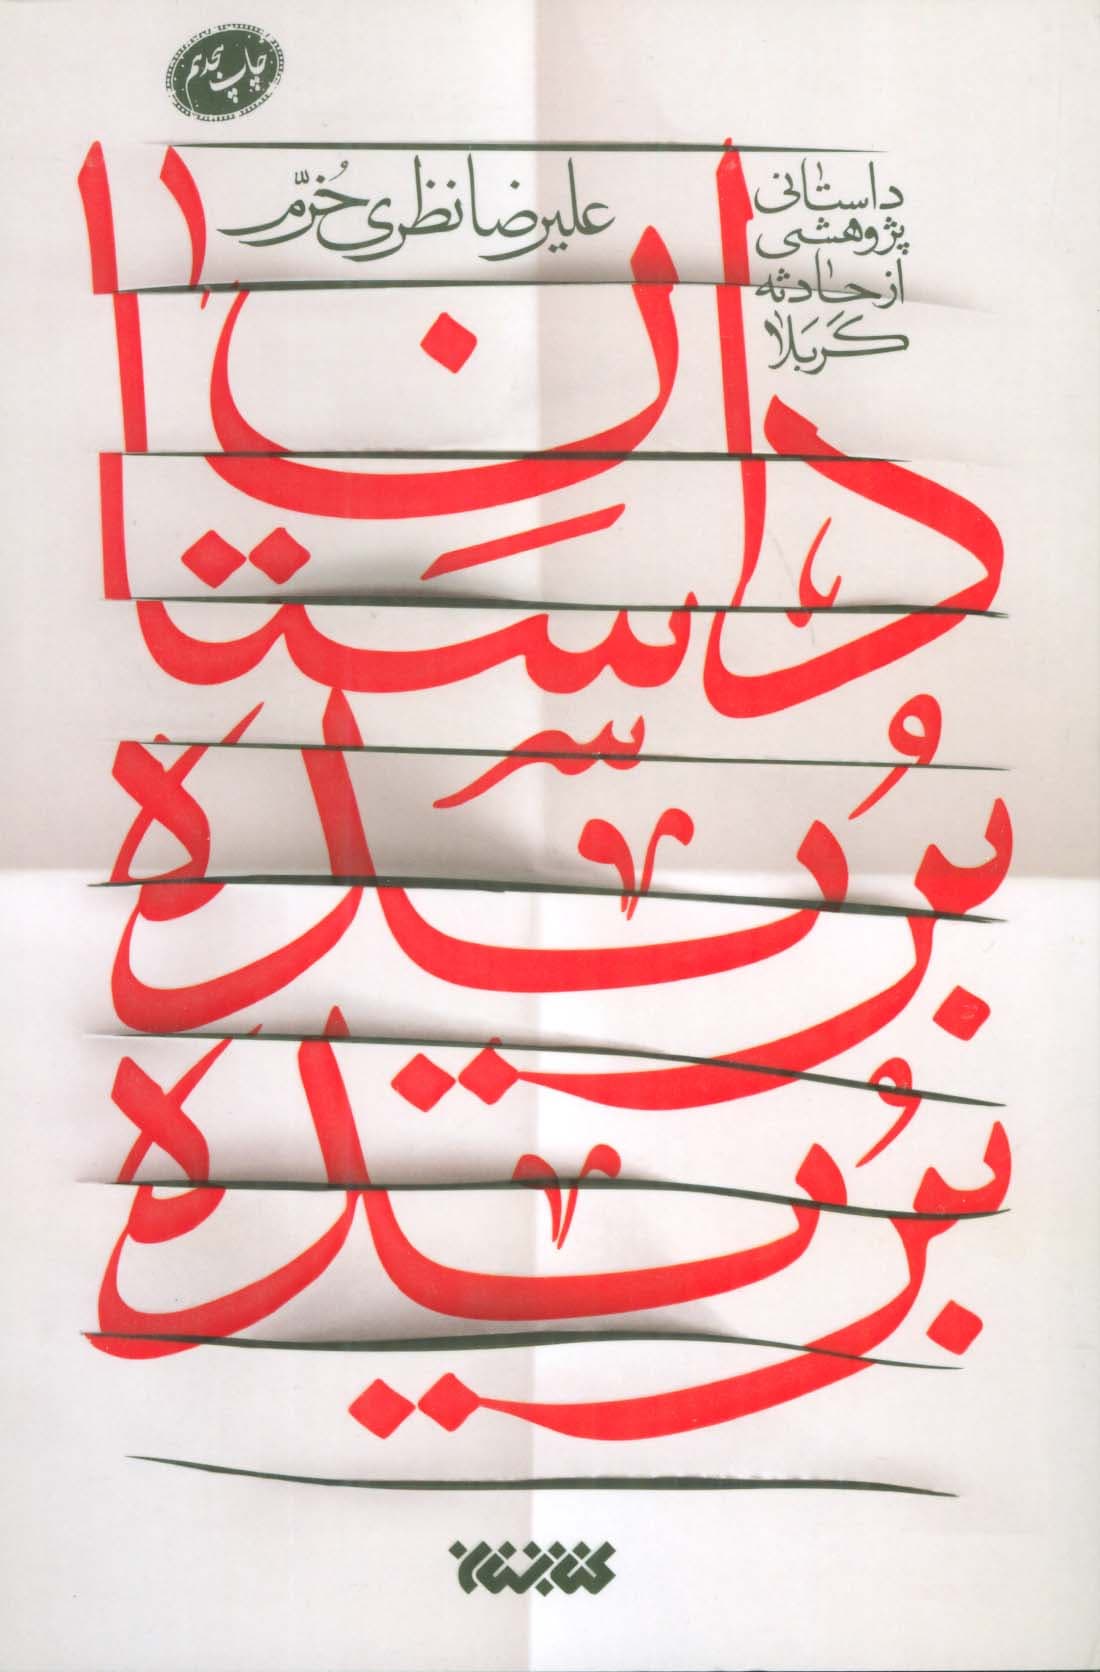 چاپ هجدهم
علیرضا نظری خُرّم
داستانی
پژوهشی
از حادثه
کَربَلا
داستان
بُریده
بُریده
کتابستان